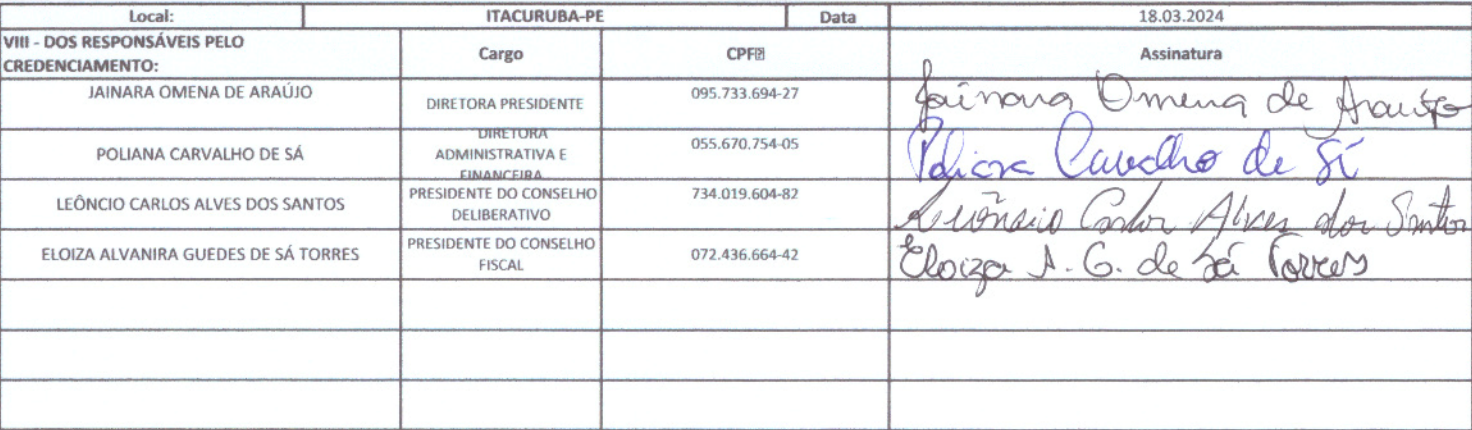 Local: ITACURUBA-PE Data 18.03.2024
VIII - DOS RESPONSÁVEIS PELO
CREDENCIAMENTO: Cargo CPF Assinatura
JAINARA OMENA DE ARAÚJO DIRETORA PRESIDENTE 095.733.694-27 Jainara Omena de Araujo
POLIANA CARVALHO DE SÁ DIRETORA
ADMINISTRATIVA E
FINANCEIRA 055.670.754-05 Poliana Carvalho de Sá
LEÔNCIO CARLOS ALVES DOS SANTOS PRESIDENTE DO CONSELHO
DELIBERATIVO 734.019.604-82 Leôncio Carlos Alves dos Santos
ELOIZA ALVANIRA GUEDES DE SÁ TORRES PRESIDENTE DO CONSELHO
FISCAL 072.436.664-42 Eloiza A. G. de Sá Torres